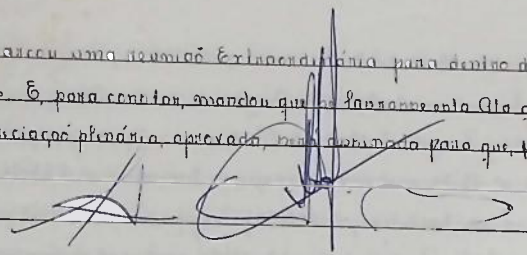 marcou uma reunião Extraordinária para dentro d
E, para constar, mandou que se lavrasse esta Ata q
ciação plenária, aprovada, será assinada para que,